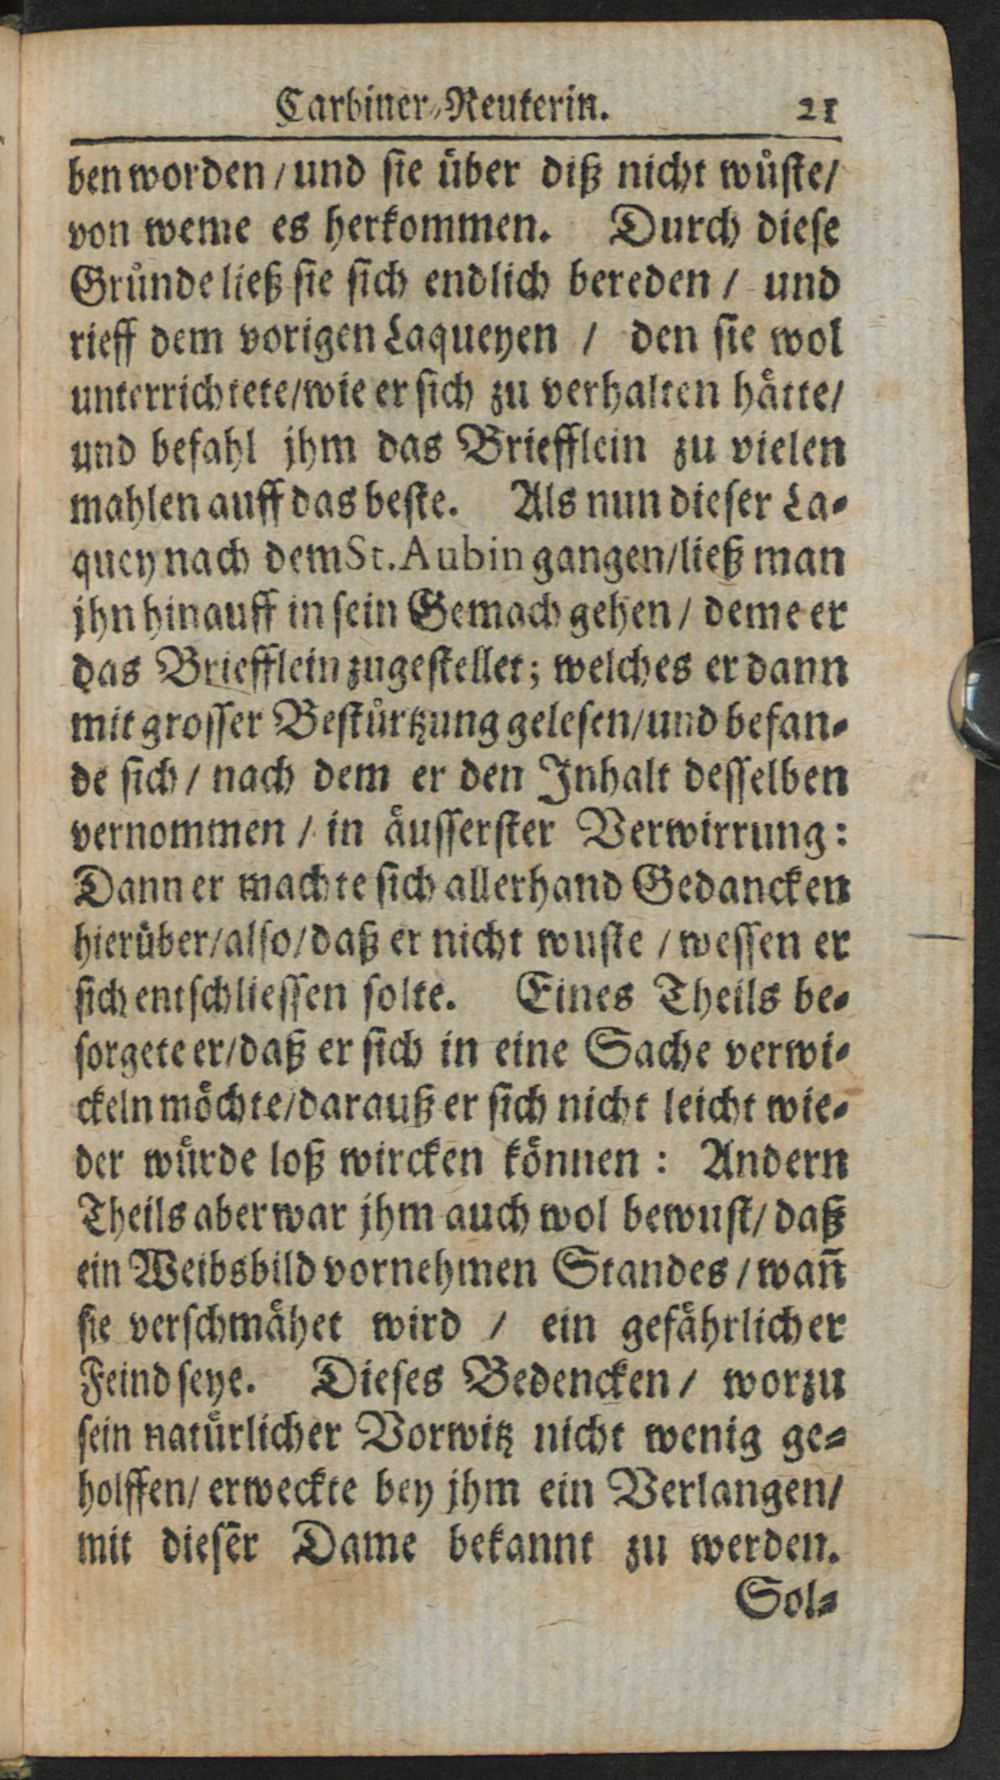 Carbiner-Reuterin. 21
ben worden / und sie über diß nicht wůste/
von weme es herkommen. Durch diese
Gründe ließ sie sich endlich bereden / und
rieff dem vorigen Laqueyen / den sie wol
unterrichtete/wie er sich zu verhalten hätte/
und befahl jhm das Briefflein zu vielen
mahlen auff das beste. Als nun dieser La-
quey nach dem St. Aubin gangen/ließ man
jhn hinauff in sein Gemach gehen / deme er
das Briefflein zugestellet; welches er dann
mit grosser Bestürtzung gelesen/und befan-
de sich / nach dem er den Inhalt desselben
vernommen / in äusserster Verwirrung:
Dann er machte sich allerhand Gedancken
hierüber/also/daß er nicht wuste / wessen er
sich entschliessen solte. Eines Theils be-
sorgete er/daß er sich in eine Sache verwi-
ckeln möchte/darauß er sich nicht leicht wie-
der würde loß wircken können : Andern
Theils aber war jhm auch wol bewust/ daß
ein Weibsbild vornehmen Standes / wañ
sie verschmähet wird / ein gefährlicher
Feind seye. Dieses Bedencken / worzu
sein natürlicher Vorwitz nicht wenig ge-
holffen/ erweckte bey jhm ein Verlangen/
mit diesēr Dame bekannt zu werden.
Sol-